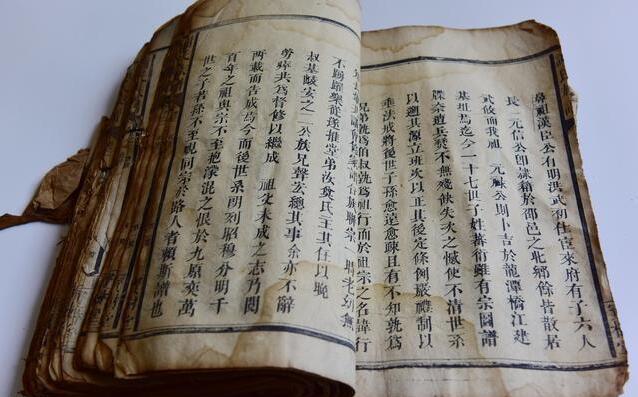 鼻祖漢臣公有明洪武初仕宦來府有子六人
長 元信公卽隸籍於邵邑之北鄉餘皆散居
武攸而我祖 元祿公則卜吉於龍潭橋江建
基祖焉迄今一十七世子姓蕃衍雖有宗圖譜
牒奈遭兵燹不無殘缺失次之憾使不清世系
以遡其源立班次以正其後定條例嚴禮制以
垂法戒將後世子孫愈遠愈疎且有不知孰爲
兄弟孰爲伯叔孰爲祖行而於祖宗之名諱行
不踴躍樂從遂推堂弟汝氏主其任以晚
叔基峻安之二公族兄聲安總其事余亦不辭
勞瘁共爲督修以繼成 祖父未成之志乃閲
兩載而告成焉今而後世系明列昭穆分明千
百年之祖與宗不至抱濛混之恨於九原奕萬
世之子若孫不至視同宗於路人者賴斯譜也